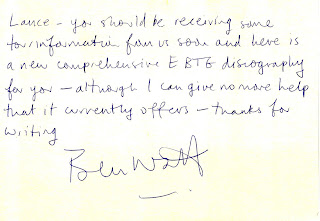 Lance - you should be receiving some
tour information from us soon and here is
a new comprehensive EBTG discography
for you - although I can give no more help
that it currently offers - thanks for
writing
Ben Watt